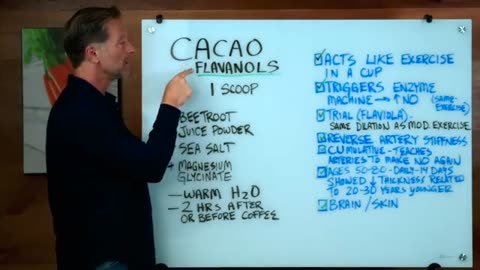 CACAO
FLAVANOLS
1 SCOOP
BEETROOT
JUICE POWDER
SEA SALT
+ MAGNESIUM
GLYCINATE
— WARM H2O
— 2 HRS AFTER
OR BEFORE COFFEE
ACTS LIKE EXERCISE
IN A CUP
TRIGGERS ENZYME
MACHINE → ↑NO (SAME-
EXERCISE)
TRIAL (FLAVIOLA) -
SAME DILATION AS MOD. EXERCISE
REVERSE ARTERY STIFFNESS
CUMULATIVE - TEACHES
ARTERIES TO MAKE NO AGAIN
AGES 50-80 - DAILY - 14 DAYS
SHOWED ↓ THICKNESS RELATED
TO 20-30 YEARS YOUNGER
BRAIN / SKIN